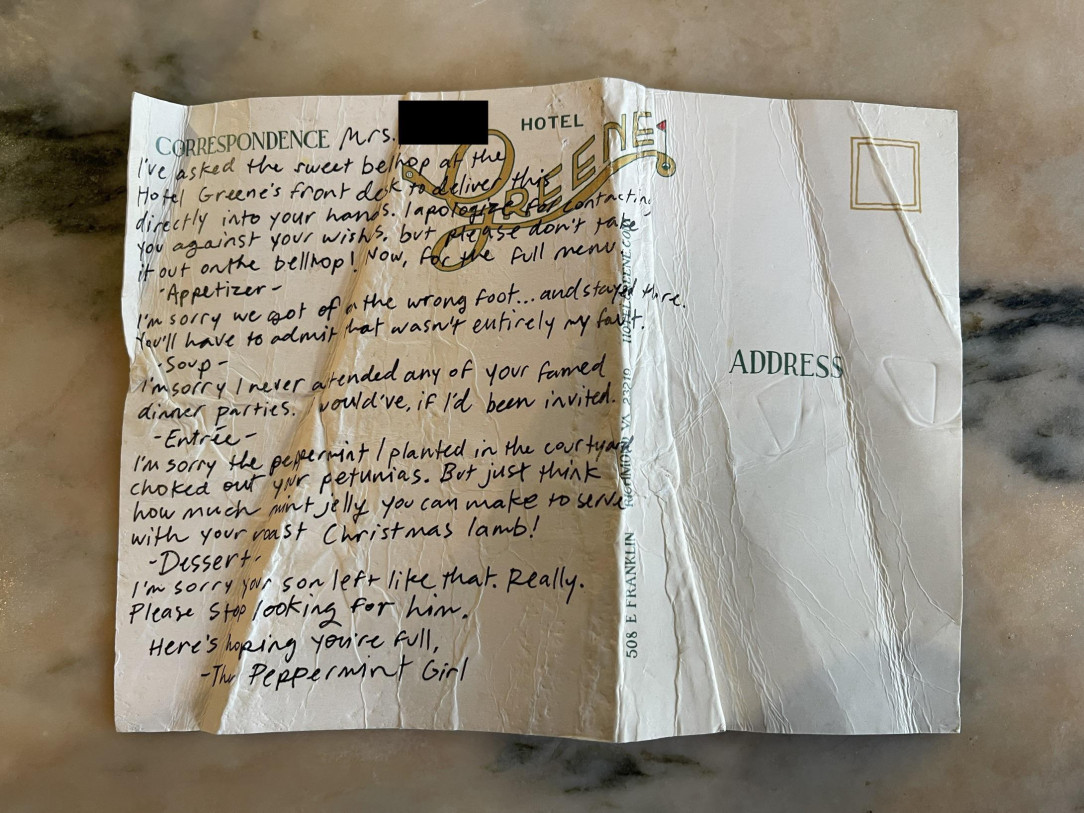 CORRESPONDENCE Mrs.
HOTEL
GREENE
I've asked the sweet bellhop at the
Hotel Greene's front desk to deliver this
directly into your hands. I apologize for contacting
you against your wishs, but please don't take
it out on the bellhop! Now, for the full menu
-Appetizer-
I'm sorry we got of on the wrong foot... and stayed there.
You'll have to admit that wasn't entirely my fault.
-Soup-
I'm sorry I never attended any of your famed
dinner parties. would've, if I'd been invited.
-Entrée-
I'm sorry the peppermint I planted in the courtyard
choked out your petunias. But just think
how much mint jelly you can make to serve
with your roast Christmas lamb!
-Dessert-
I'm sorry your son left like that. Really.
Please stop looking for him.
Here's hoping you're full,
-The Peppermint Girl
508 E FRANKLIN RICHMOND VA 23219 HOTELGREENE.COM
ADDRESS